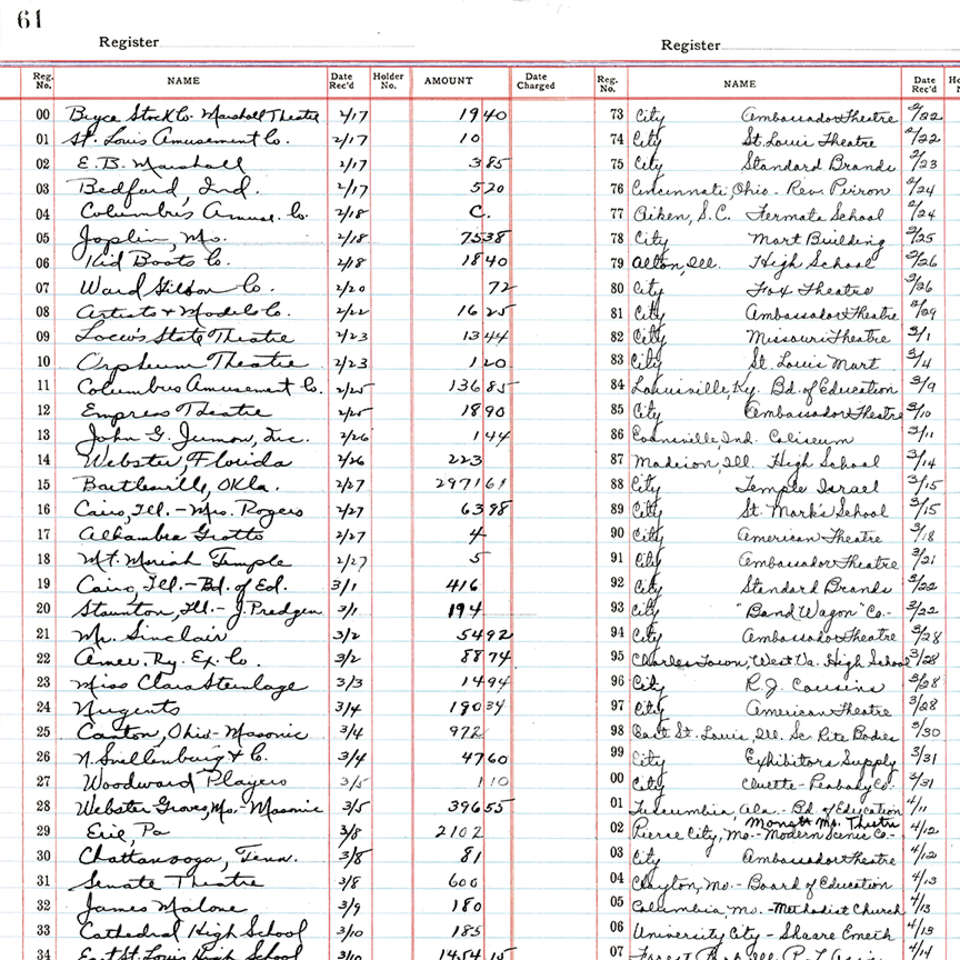 61
Register
Reg. No. NAME Date Rec'd Holder No. AMOUNT Date Charged
00 Bryce Stock Co. Marshall Theatre 2/17 19 40
01 St. Louis Amusement Co. 2/17 10
02 E.B. Marshall 2/17 3 85
03 Bedford, Ind. 2/17 5 20
04 Columbus Amuse. Co. 2/18 C.
05 Joplin, Mo. 2/18 75 38
06 Kid Boots Co. 2/18 18 40
07 Ward Co. 2/20 72
08 Artists & Models Co. 2/22 16 25
09 Loew's State Theatre 2/23 13 44
10 Orpheum Theatre 2/23 1 20
11 Columbus Amusement Co. 2/25 136 85
12 Empress Theatre 2/25 18 90
13 John G. Inc. 2/26 1 44
14 Webster, Florida 2/26 2 23
15 Bartlesville, Okla. 2/27 2971 61
16 Cairo, Ill. - Mrs. Rogers 2/27 63 98
17 Alhambra Grotto 2/27 4
18 Mt. Moriah Temple 2/27 5
19 Cairo, Ill. - Bd. of Ed. 3/1 416
20 Staunton, Ill. - J. 3/1 194
21 Mr. Sinclair 3/2 54 92
22 Amer. Ry. Ex. Co. 3/2 88 74
23 Miss Clara Steinlage 3/3 14 94
24 Nugents 3/4 190 34
25 Canton, Ohio - Masonic 3/4 972
26 N. Snellenburg & Co. 3/4 47 60
27 Woodward Players 3/5 1 10
28 Webster Groves, Mo. - Masonic 3/5 396 55
29 Erie, Pa 3/8 2102
30 Chattanooga, Tenn. 3/8 81
31 Senate Theatre 3/8 600
32 James Malone 3/9 180
33 Cathedral High School 3/10 185
34 East St. Louis High School 3/10 1454 15
Register
Reg. No. NAME Date Rec'd
73 City Ambassador Theatre 2/22
74 City St. Louis Theatre 2/22
75 City Standard Brands 2/23
76 Cincinnati, Ohio - Rev. Peirron 2/24
77 Aiken, S.C. Fermata School 2/24
78 City Mart Building 2/25
79 Alton, Ill. High School 2/26
80 City Fox Theatre 2/26
81 City Ambassador Theatre 2/29
82 City Missouri Theatre 3/1
83 City St. Louis Mart 3/4
84 Louisville, Ky. Bd. of Education 3/9
85 City Ambassador Theatre 3/10
86 Evansville, Ind. Coliseum 3/11
87 Madison, Ill. High School 3/14
88 City Temple Israel 3/15
89 City St. Mark's School 3/15
90 City American Theatre 3/18
91 City Ambassador Theatre 3/21
92 City Standard Brands 3/22
93 City "Band Wagon" Co. 3/22
94 City Ambassador Theatre 3/28
95 Charles Town, West Va. High School 3/28
96 City R.J. Cousins 3/28
97 City American Theatre 3/28
98 East St. Louis, Ill. Sc. Rite Bodies 3/30
99 City Exhibitors Supply 3/31
00 City Cluett-Peabody Co. 3/31
01 Tuscumbia, Ala. - Bd. of Education 4/11
Monett Mo. Theatre
02 Pierce City, Mo. - Modern Scenic Co. 4/12
03 City Ambassador Theatre 4/12
04 Clayton, Mo. - Board of Education 4/13
05 Columbia, Mo. - Methodist Church 4/13
06 University City - Shaare Emeth 4/13
07 Forest Park, Ill. 4/14